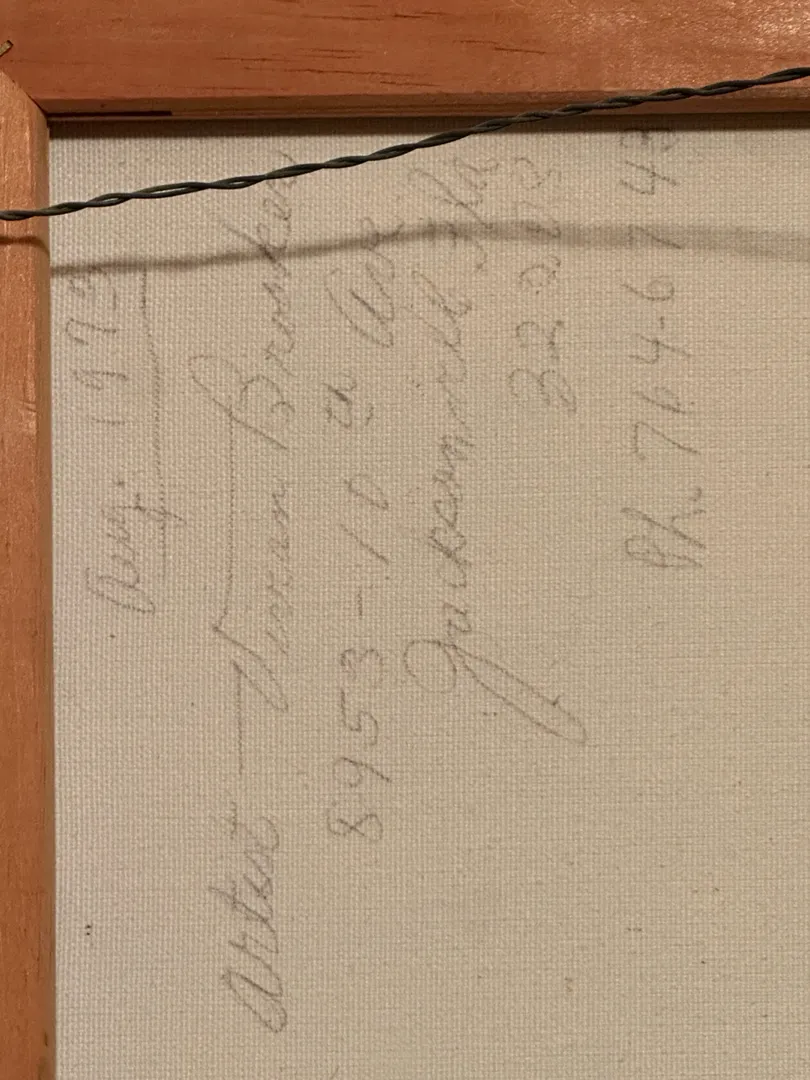 Aug. 1973
Artist — Vivian
8953-10 th Ave
Jacksonville Fla
Ph. 764-6743